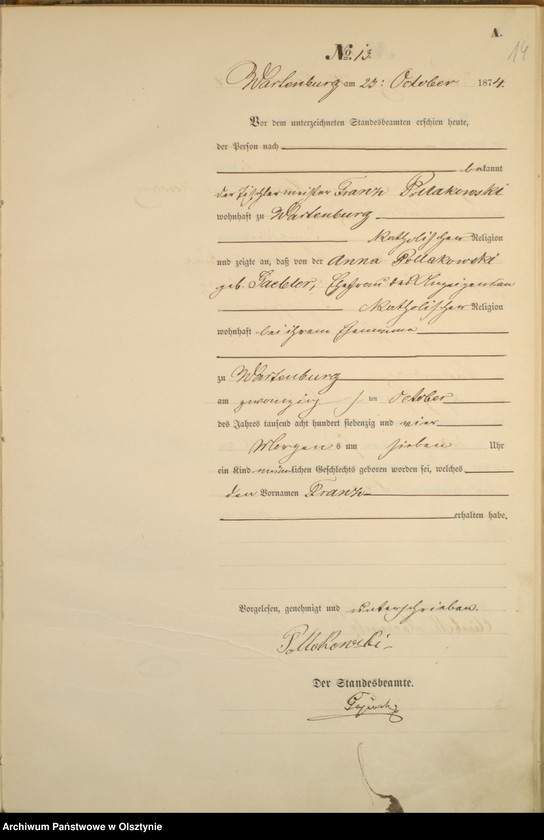 A.
14
No. 13
Wartenburg am 23: October 1874.
Vor dem unterzeichneten Standesbeamten erschien heute,
der Person nach
bekannt
der Tischlermeister Franz Pollakowski
wohnhaft zu Wartenburg
katholischer Religion
und zeigte an, daß von der Anna Pollakowski
geb. Ehefrau des Anzeigenden
katholischer Religion
wohnhaft bei ihrem Ehemanne
zu Wartenburg
am zwanzig ten October
des Jahres tausend acht hundert siebenzig und vier
Morgens um sieben Uhr
ein Kind männlichen Geschlechts geboren worden sei, welches
den Vornamen Franz
erhalten habe.
Vorgelesen, genehmigt und unterschrieben.
Pollakowski
Der Standesbeamte.
Archiwum Państwowe w Olsztynie